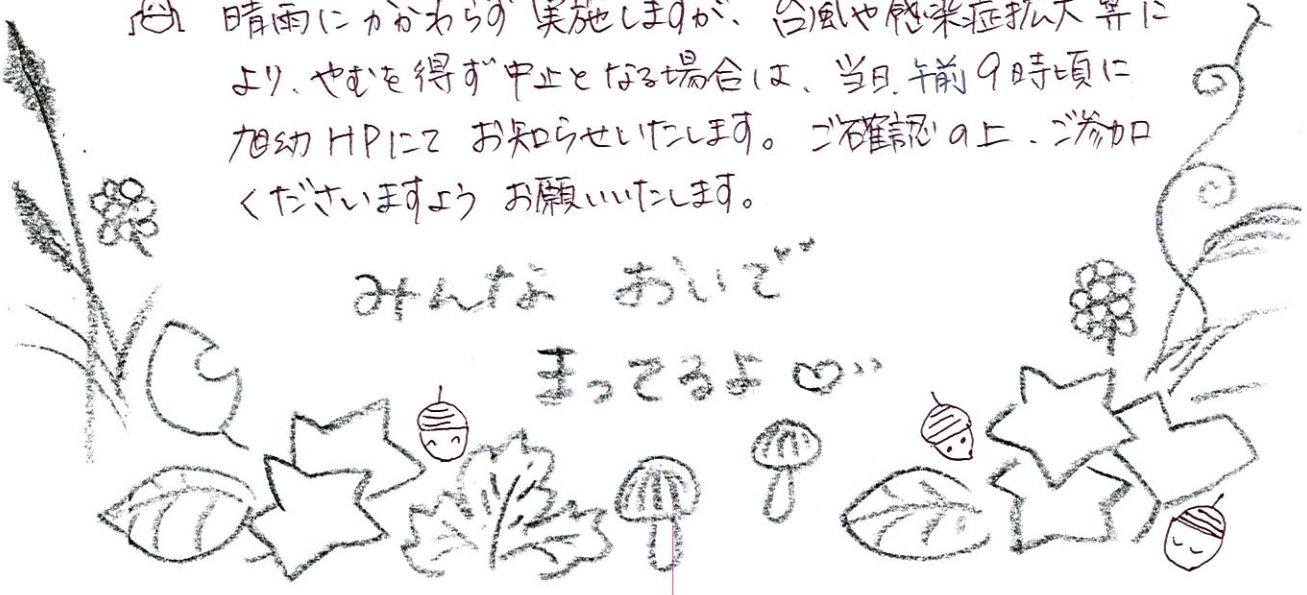 晴雨にかかわらず実施しますが、台風や感染症拡大等に
より、やむを得ず中止となる場合は、当日、午前9時頃に
旭幼HPにてお知らせいたします。ご確認の上、ご参加
くださいますようお願いいたします。
みんな おいで
まってるよ♡